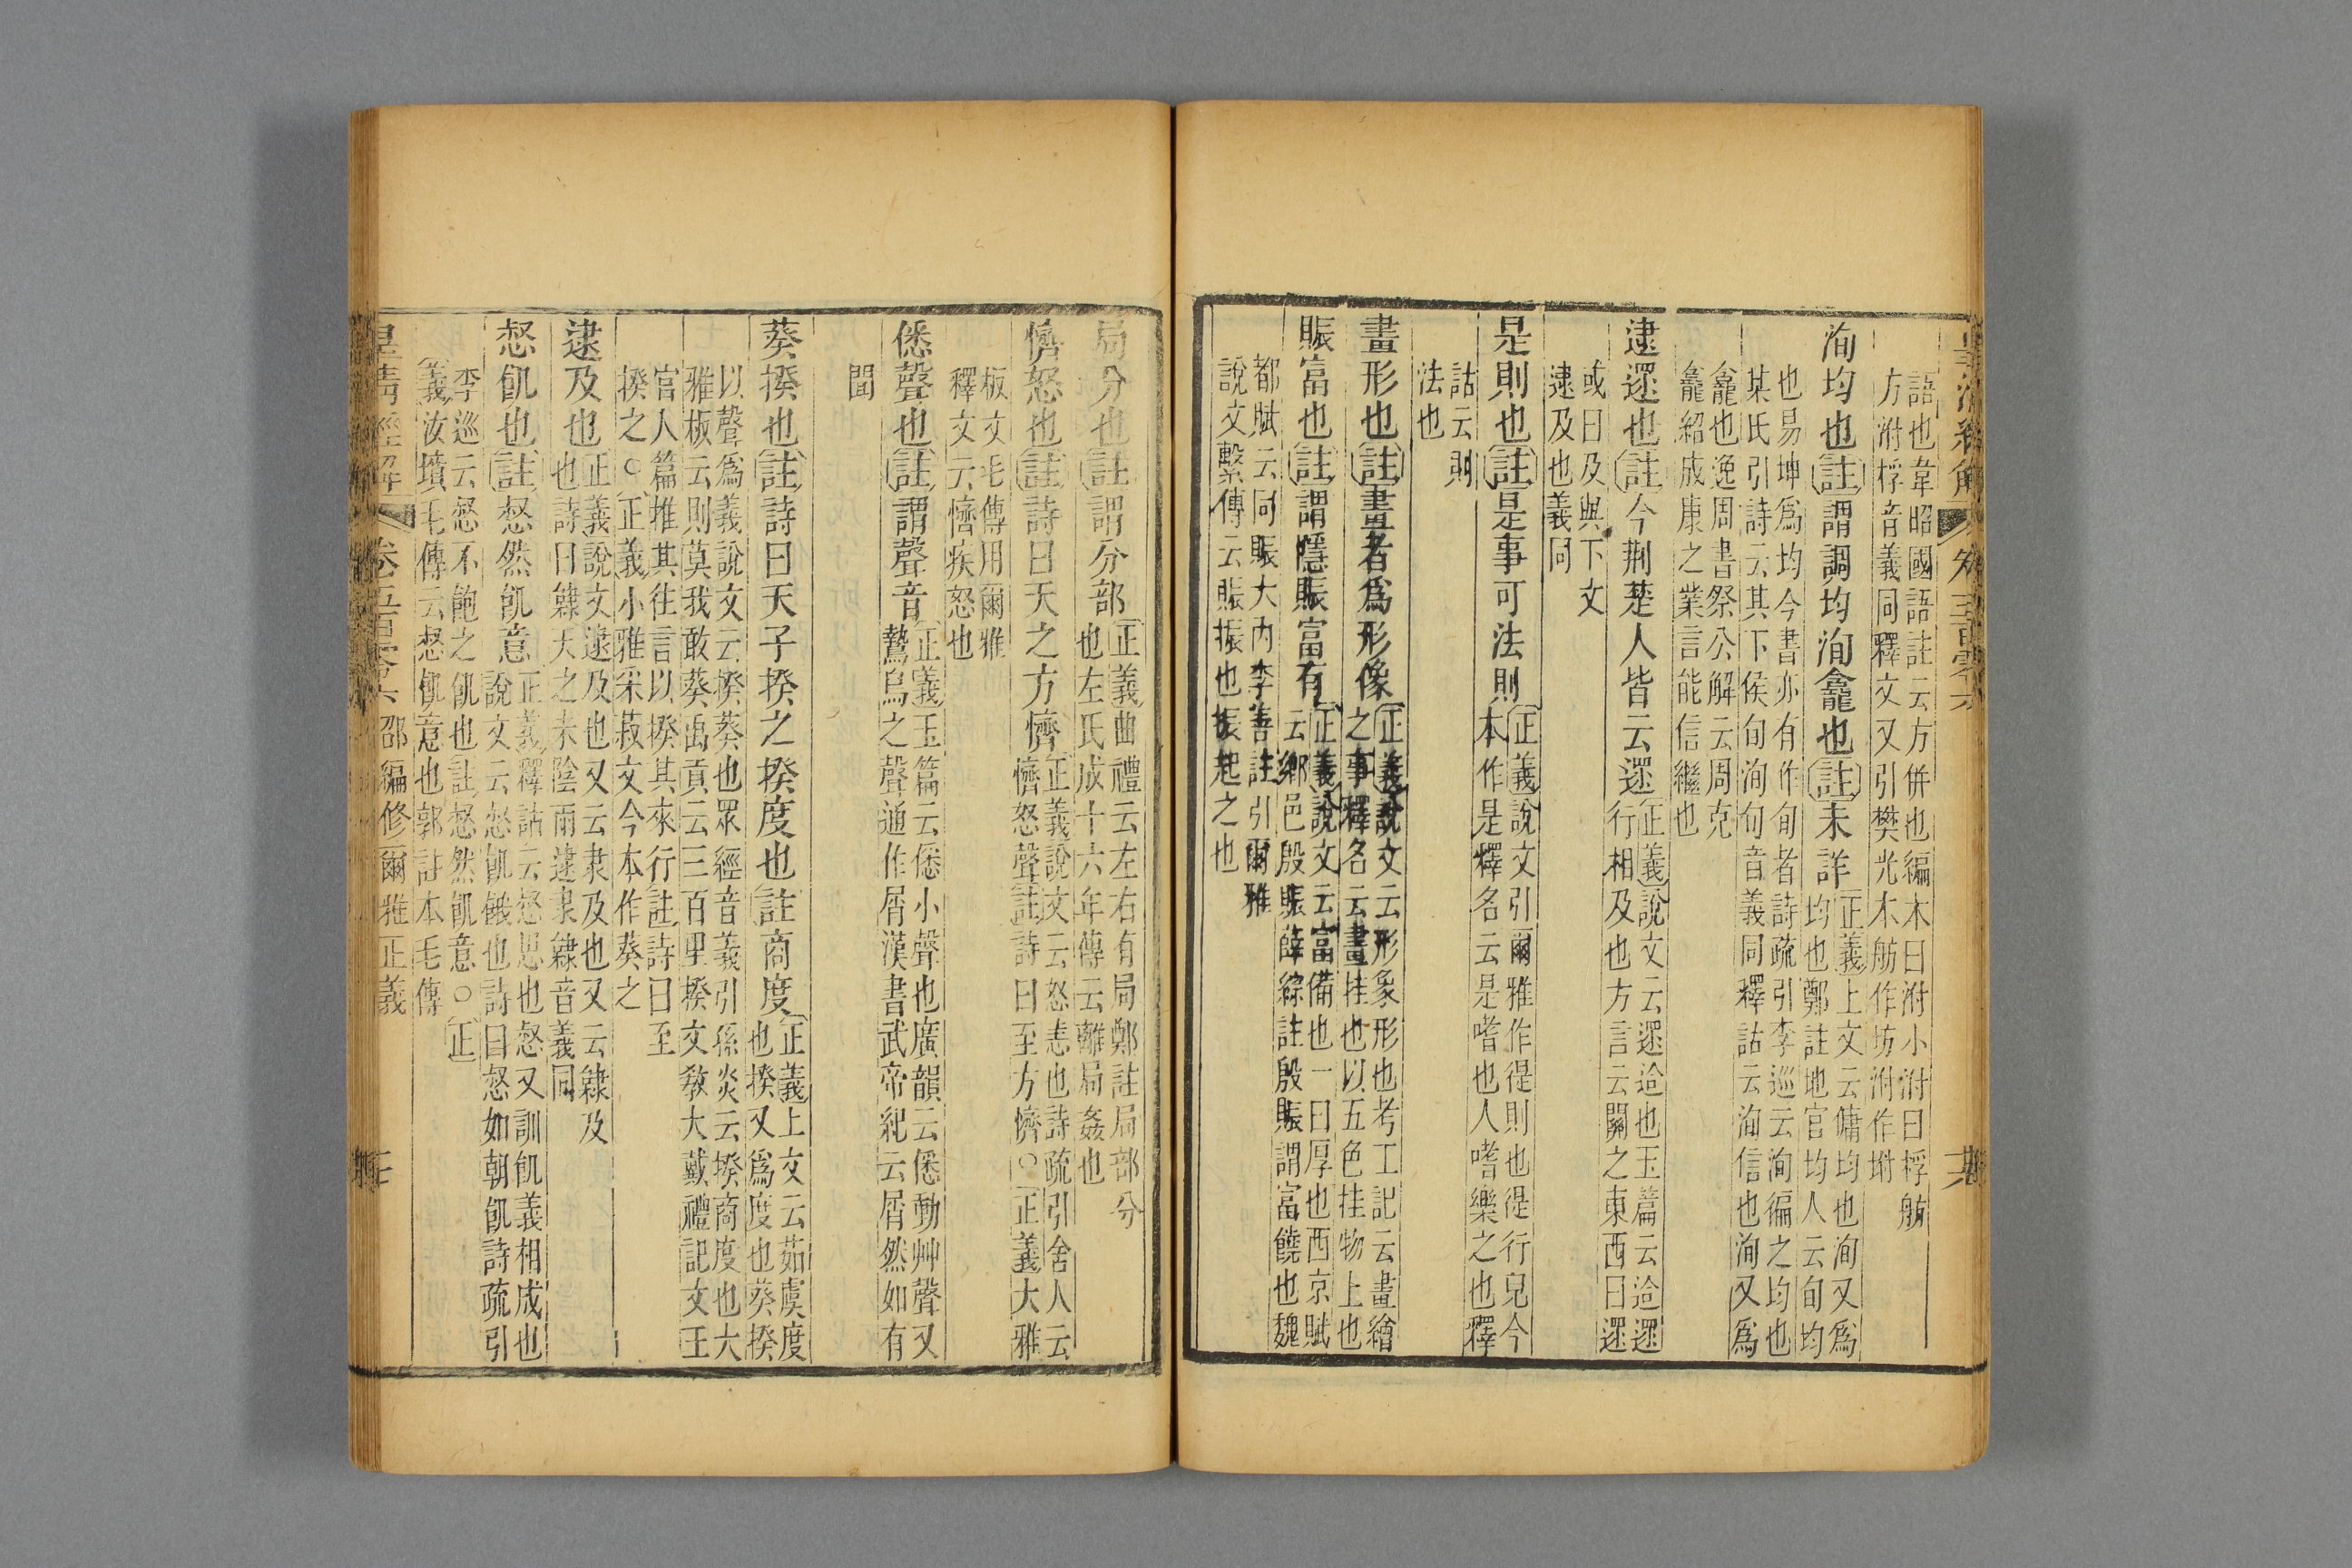 語也韋昭國語註云方併也編木曰泭小泭曰桴舫
方泭桴音義同釋文又引樊光木舫作坊泭作坿
洵均也註謂調均洵龕也註未詳正義上文云傭均也洵又爲
均也鄭註地官均人云旬均
也易坤爲均今書亦有作旬者詩疏引李巡云洵徧之均也
某氏引詩云其下侯旬洵旬音義同釋詁云洵信也洵又爲
龕也逸周書祭公解云周克
龕紹成康之業言能信繼也
逮遝也註今荆楚人皆云遝正義說文云遝迨也玉篇云迨遝
行相及也方言云關之東西曰遝
或曰及與下文
逮及也義同
是則也註是事可法則正義說文引爾雅作徥則也徥行皃今
本作是釋名云是嗜也人嗜樂之也釋
詁云則
法也
畫形也註畫者爲形像正義說文云形象形也考工記云畫繪
之事釋名云畫挂也以五色挂物上也
賑富也註謂隱賑富有正義說文云富備也一曰厚也西京賦
云鄉邑殷賑薛綜註殷賑謂富饒也魏
都賦云同賑大內李善註引爾雅
說文繫傳云賑振也振起之也
局分也註謂分部正義曲禮云左右有局鄭註局部分
也左氏成十六年傳云離局姦也
懠怒也註詩曰天之方懠正義說文云怒恚也詩疏引舍人云
懠怒聲註詩曰至方懠○正義大雅
板文毛傳用爾雅
釋文云懠疾怒也
僁聲也註謂聲音正義玉篇云僁小聲也廣韻云僁動艸聲又
鷙鳥之聲通作屑漢書武帝紀云屑然如有
聞
葵揆也註詩曰天子揆之揆度也註商度正義上文云茹虞度
也揆又爲度也葵揆
以聲爲義說文云揆葵也眾經音義引孫炎云揆商度也大
雅板云則莫我敢葵禹貢云三百里揆文敎大戴禮記文王
官人篇推其往言以揆其來行註詩曰至
揆之○正義小雅采菽文今本作葵之
逮及也正義說文逮及也又云隶及也又云隸及
也詩曰隸天之未陰雨逮隶隸音義同
惄飢也註惄然飢意正義釋詁云惄思也惄又訓飢義相成也
說文云惄飢餓也詩曰惄如朝飢詩疏引
李巡云惄不飽之飢也註惄然飢意○正
義汝墳毛傳云惄飢意也郭註本毛傳
皇清經解 卷五百零六 邵編修爾雅正義